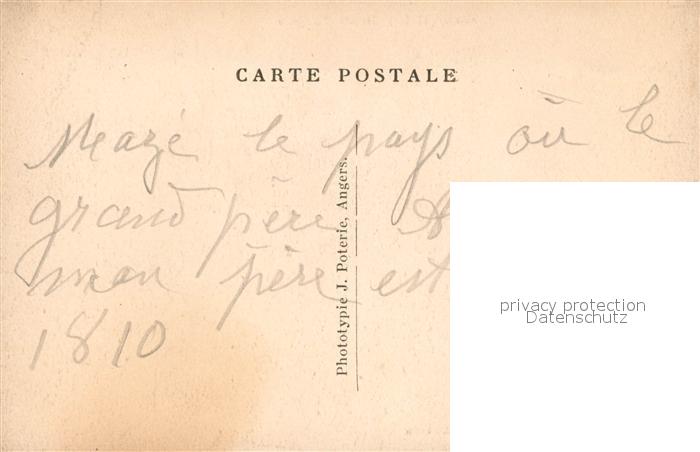 CARTE POSTALE
Mazé le pays où le
grand père
mon père est
1810
Phototypie J. Poterie, Angers.
privacy protection
Datenschutz